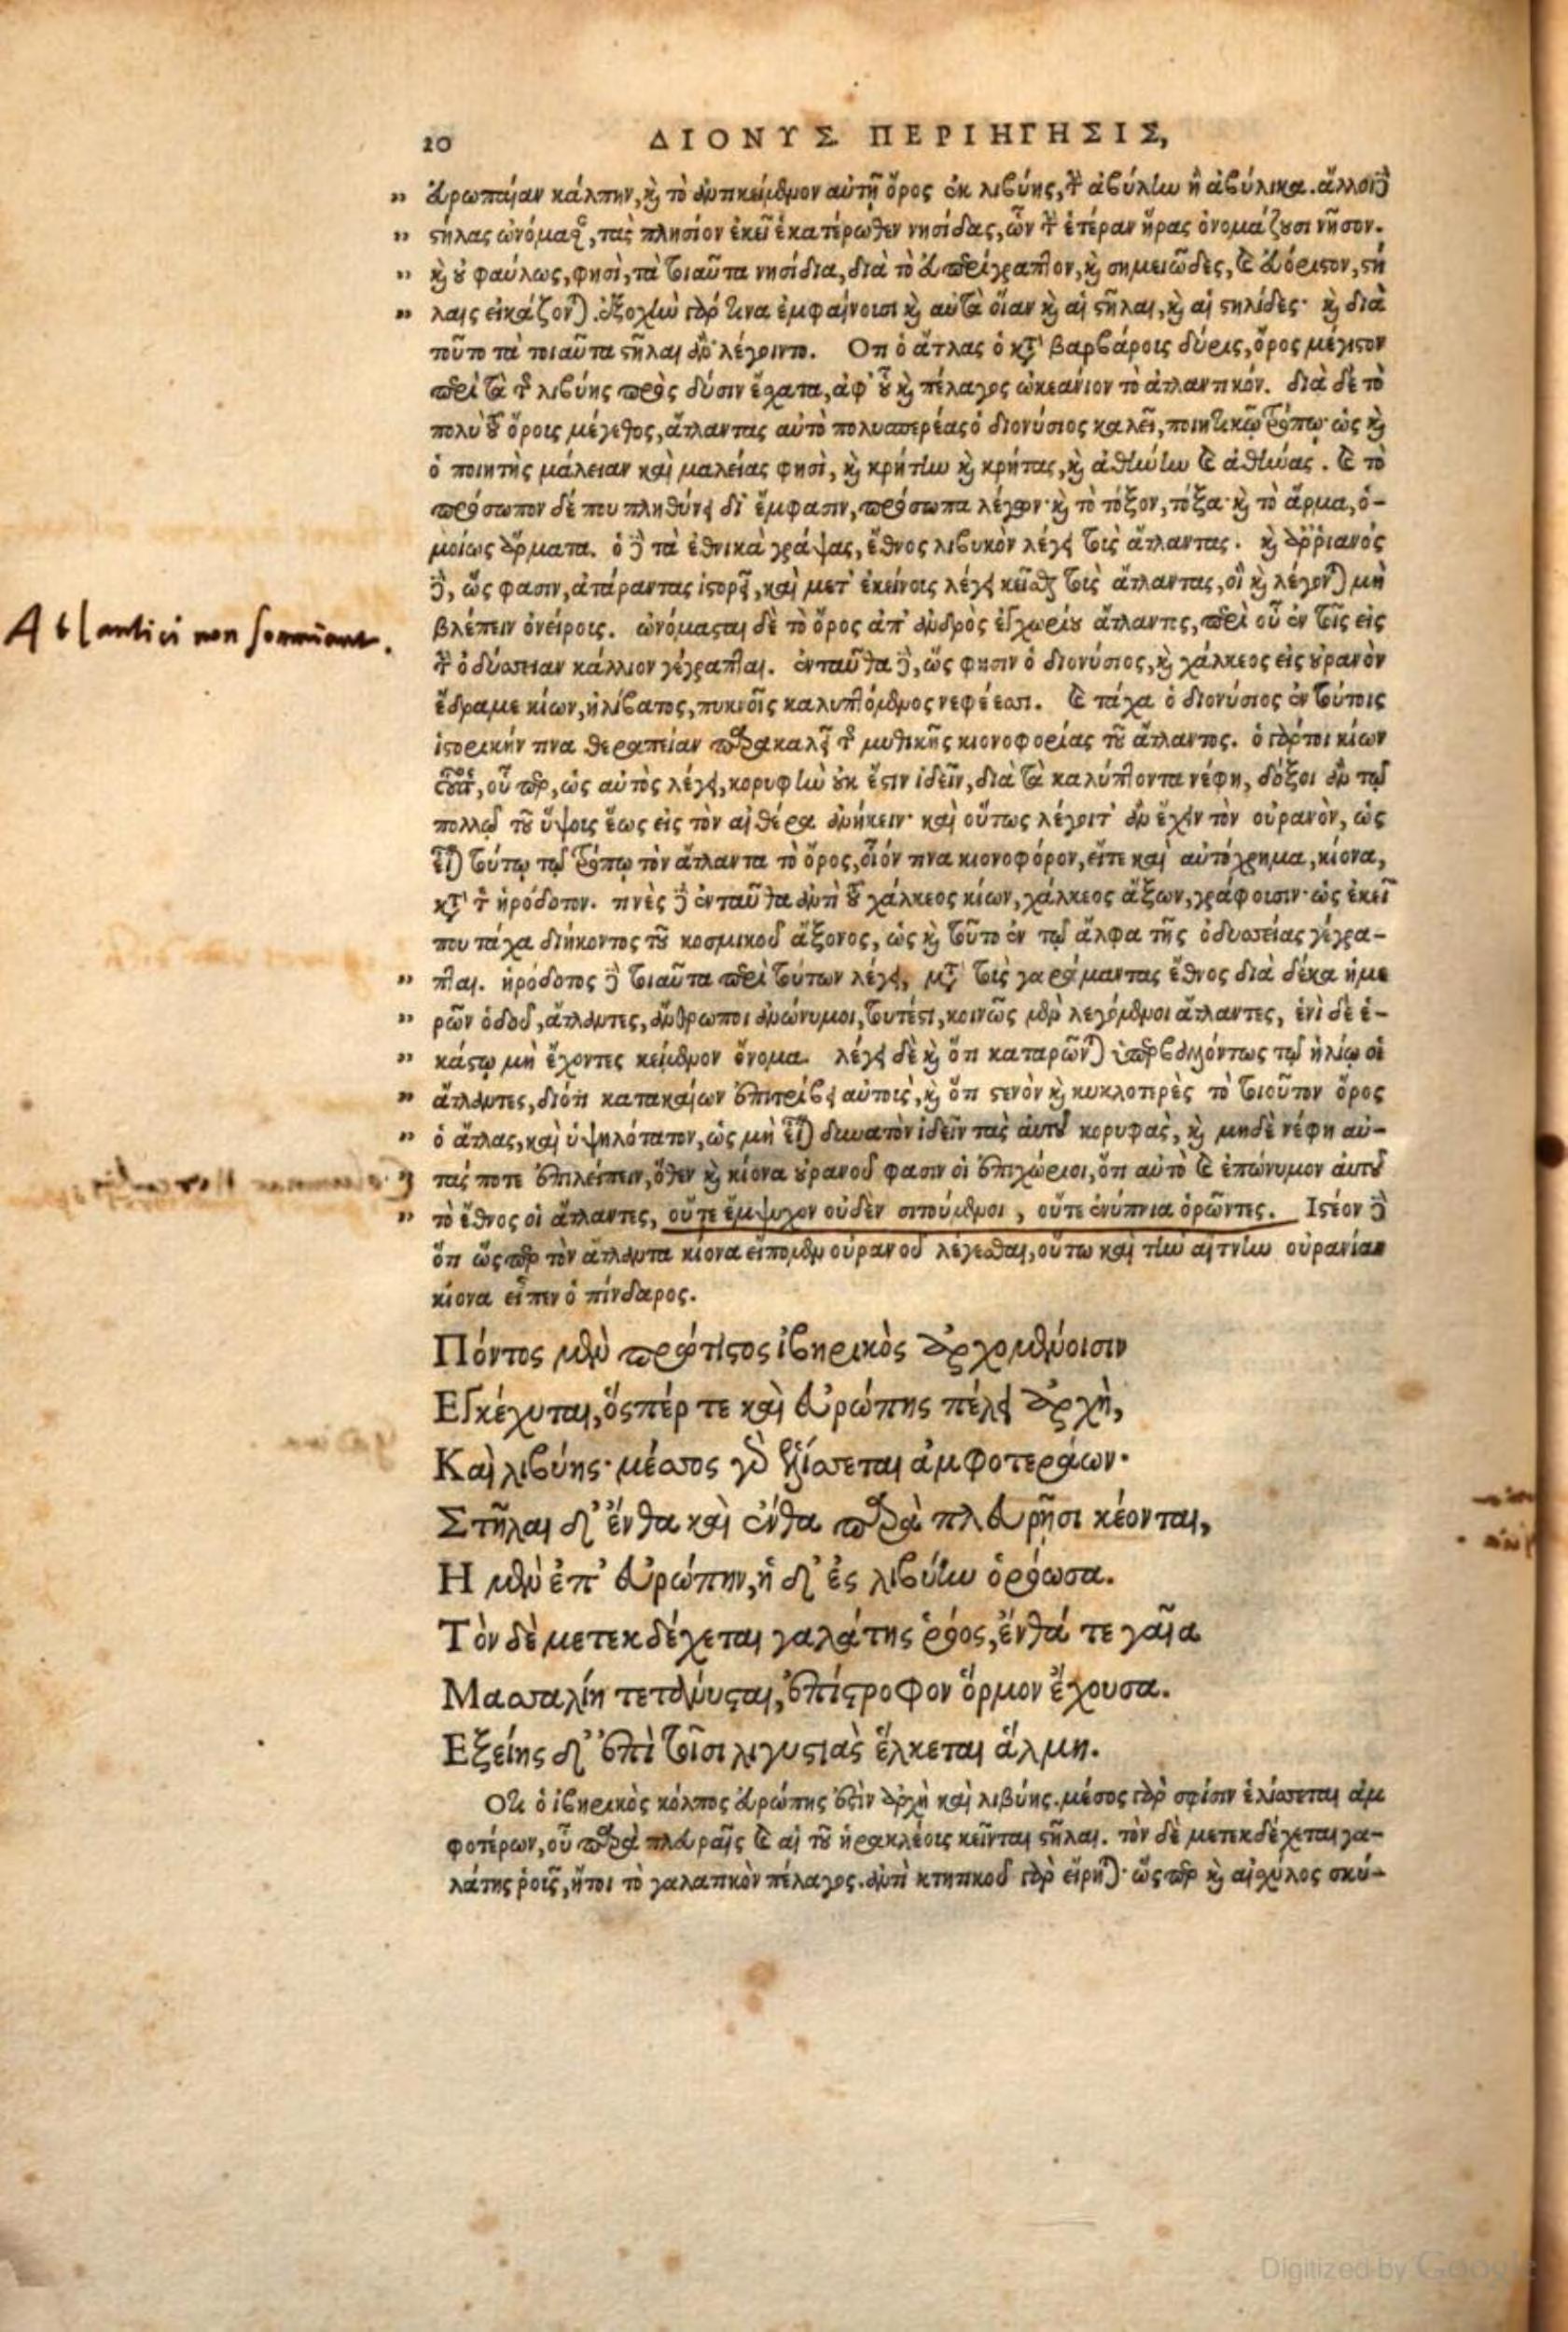 20 ΔΙΟΝΥΣ ΠΕΡΙΗΓΗΣΙΣ,
„ ἐυρωπαίαν κάλπην, καὶ τὸ ἀντικείμενον αὐτῇ ὄρος ἐκ λιβύης, τὴν ἀβύλην ἢ ἀβύλικα. ἄλλοι δὲ
„ στήλας ὠνόμασαν, τὰς πλησίον ἐκεῖ ἑκατέρωθεν νησίδας, ὧν τὴν ἑτέραν ἥρας ὀνομάζουσι νῆσον.
„ καὶ οὐ φαύλως, φησὶ, τὰ τοιαῦτα νησίδια, διὰ τὸ ἐυπερίγραπτον, καὶ σημειῶδες, καὶ ἐυόριστον, στή
„ λαις εἰκάζονται. ἐξοχὴν γάρ τινα ἐμφαίνουσι καὶ αὐτὰ οἵαν καὶ αἱ στῆλαι, καὶ αἱ στηλίδες· καὶ διὰ
τοῦτο τὰ τοιαῦτα στῆλαι ἂν λέγοιντο. Οτι ὁ ἄτλας ὁ κατὰ βαρβάρους δύρις, ὄρος μέγιστον
περὶ τὰ τῆς λιβύης πρὸς δύσιν ἔσχατα, ἀφ' οὗ καὶ πέλαγος ὠκεάνιον τὸ ἀτλαντικόν. διὰ δὲ τὸ
πολὺ τοῦ ὄρους μέγεθος, ἄτλαντας αὐτὸ πολυσπερέας ὁ διονύσιος καλεῖ, ποιητικῷ τρόπῳ· ὡς καὶ
ὁ ποιητὴς μάλειαν καὶ μαλείας φησὶ, καὶ κρήτην καὶ κρήτας, καὶ ἀθήνην καὶ ἀθήνας. καὶ τὸ
πρόσωπον δέ που πληθύνει δι' ἔμφασιν, πρόσωπα λέγων· καὶ τὸ τόξον, τόξα· καὶ τὸ ἅρμα, ὁ-
μοίως ἅρματα. ὁ δὲ τὰ ἐθνικὰ γράψας, ἔθνος λιβυκὸν λέγει τοὺς ἄτλαντας. καὶ ἀρριανός
δὲ, ὥς φασιν, ἀτάραντας ἱστορεῖ, καὶ μετ' ἐκείνους λέγει κεῖσθαι τοὺς ἄτλαντας, οἳ καὶ λέγονται μὴ
βλέπειν ὀνείρους. ὠνόμασται δὲ τὸ ὄρος ἀπ' ἀνδρὸς ἐγχωρίου ἄτλαντος, περὶ οὗ ἐν τοῖς εἰς
τὴν ὀδύσσειαν κάλλιον γέγραπται. ἐνταῦθα δὲ, ὥς φησιν ὁ διονύσιος, καὶ χάλκεος εἰς οὐρανὸν
ἔδραμε κίων, ἠλίβατος, πυκνοῖς καλυπτόμενος νεφέεσσι. καὶ τάχα ὁ διονύσιος ἐν τούτοις
ἱστορικήν τινα θεραπείαν παρακαλεῖ τῆς μυθικῆς κιονοφορίας τοῦ ἄτλαντος. ὁ γάρτοι κίων
οὗτος, οὗ περ, ὡς αὐτὸς λέγει, κορυφὴν οὐκ ἔστιν ἰδεῖν, διὰ τὰ καλύπτοντα νέφη, δόξοι ἂν τῷ
πολλῷ τοῦ ὕψους ἕως εἰς τὸν αἰθέρα ἀνήκειν· καὶ οὕτως λέγοιτ' ἂν ἔχειν τὸν οὐρανὸν, ὡς
εἶναι τούτῳ τῷ τρόπῳ τὸν ἄτλαντα τὸ ὄρος, οἷόν τινα κιονοφόρον, εἴτε καὶ αὐτόχρημα, κίονα,
κατὰ τὸν ἡρόδοτον. τινὲς δὲ ἐνταῦθα ἀντὶ τοῦ χάλκεος κίων, χάλκεος ἄξων, γράφουσιν· ὡς ἐκεῖ
που τάχα διήκοντος τοῦ κοσμικοῦ ἄξονος, ὡς καὶ τοῦτο ἐν τῷ ἄλφα τῆς ὀδυσσείας γέγρα-
„ πται. ἡρόδοτος δὲ τοιαῦτα περὶ τούτων λέγει, μετὰ τοὺς γαράμαντας ἔθνος διὰ δέκα ἡμε
„ ρῶν ὁδοῦ, ἄτλαντες, ἄνθρωποι ἀνώνυμοι, τουτέστι, κοινῶς μὲν λεγόμενοι ἄτλαντες, ἑνὶ δὲ ἑ-
„ κάστῳ μὴ ἔχοντες κείμενον ὄνομα. λέγει δὲ καὶ ὅτι καταρῶνται ὑπερβάλλοντως τῷ ἡλίῳ οἱ
„ ἄτλαντες, διότι κατακαίων ἐπιτρίβει αὐτοὺς, καὶ ὅτι στενὸν καὶ κυκλοτερὲς τὸ τοιοῦτον ὄρος
„ ὁ ἄτλας, καὶ ὑψηλότατον, ὡς μὴ εἶναι δυνατὸν ἰδεῖν τὰς αὐτοῦ κορυφὰς, καὶ μηδὲ νέφη αὐ-
„ τάς ποτε ἐπιλείπειν, ὅθεν καὶ κίονα οὐρανοῦ φασιν οἱ ἐπιχώριοι, ὅτι αὐτὸ καὶ ἐπώνυμον αὐτοῦ
„ τὸ ἔθνος οἱ ἄτλαντες, οὔτε ἔμψυχον οὐδὲν σιτούμενοι, οὔτε ἐνύπνια ὁρῶντες. Ιστέον δὲ
ὅτι ὥσπερ τὸν ἄτλαντα κίονα εἴπομεν οὐρανοῦ λέγεσθαι, οὕτω καὶ τὴν αἴτνην οὐρανίαν
κίονα εἶπεν ὁ πίνδαρος.
Πόντος μὲν πρώτιστος ἰβηρικὸς ἀρχομένοισιν
Εγκέχυται, ὅςπέρ τε καὶ ἐυρώπης πέλει ἀρχὴ,
Καὶ λιβύης· μέσσος γὰρ ἑλίσσεται ἀμφοτεράων·
Στῆλαι δ' ἔνθα καὶ ἔνθα παρὰ πλευρῇσι κέονται,
Η μὲν ἐπ' ἐυρώπην, ἡ δ' ἐς λιβύην ὁρόωσα.
Τὸν δὲ μετεκδέχεται γαλάτης ῥόος, ἔνθά τε γαῖα
Μασσαλίη τετάνυσται, ἐπίστροφον ὅρμον ἔχουσα.
Εξείης δ' ἐπὶ τοῖσι λιγυστιὰς ἕλκεται ἅλμη.
Οτι ὁ ἰβηρικὸς κόλπος ἐυρώπης ἐστὶν ἀρχὴ καὶ λιβύης. μέσος γὰρ σφίσιν ἑλίσσεται ἀμ
φοτέρων, οὗ παρὰ πλευραῖς καὶ αἱ τοῦ ἡρακλέους κεῖνται στῆλαι. τὸν δὲ μετεκδέχεται γα-
λάτης ῥοῦς, ἤτοι τὸ γαλατικὸν πέλαγος. ἀντὶ κτητικοῦ γὰρ εἴρηται· ὥσπερ καὶ αἰσχύλος σκύ-
Atlantici non somniant.
Digitized by Google